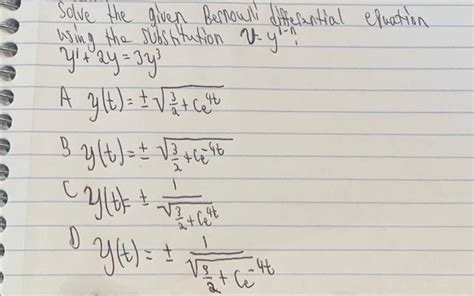 Solve the given Bernoulli differential equation
using the substitution v = y^{1-n}.
y' + 2y = 3y³
A y(t) = ± √(3/2 + Ce^{4t})
B y(t) = ± √(3/2 + Ce^{-4t})
C y(t) = ± 1/√(3/2 + Ce^{4t})
D y(t) = ± 1/√(3/2 + Ce^{-4t})